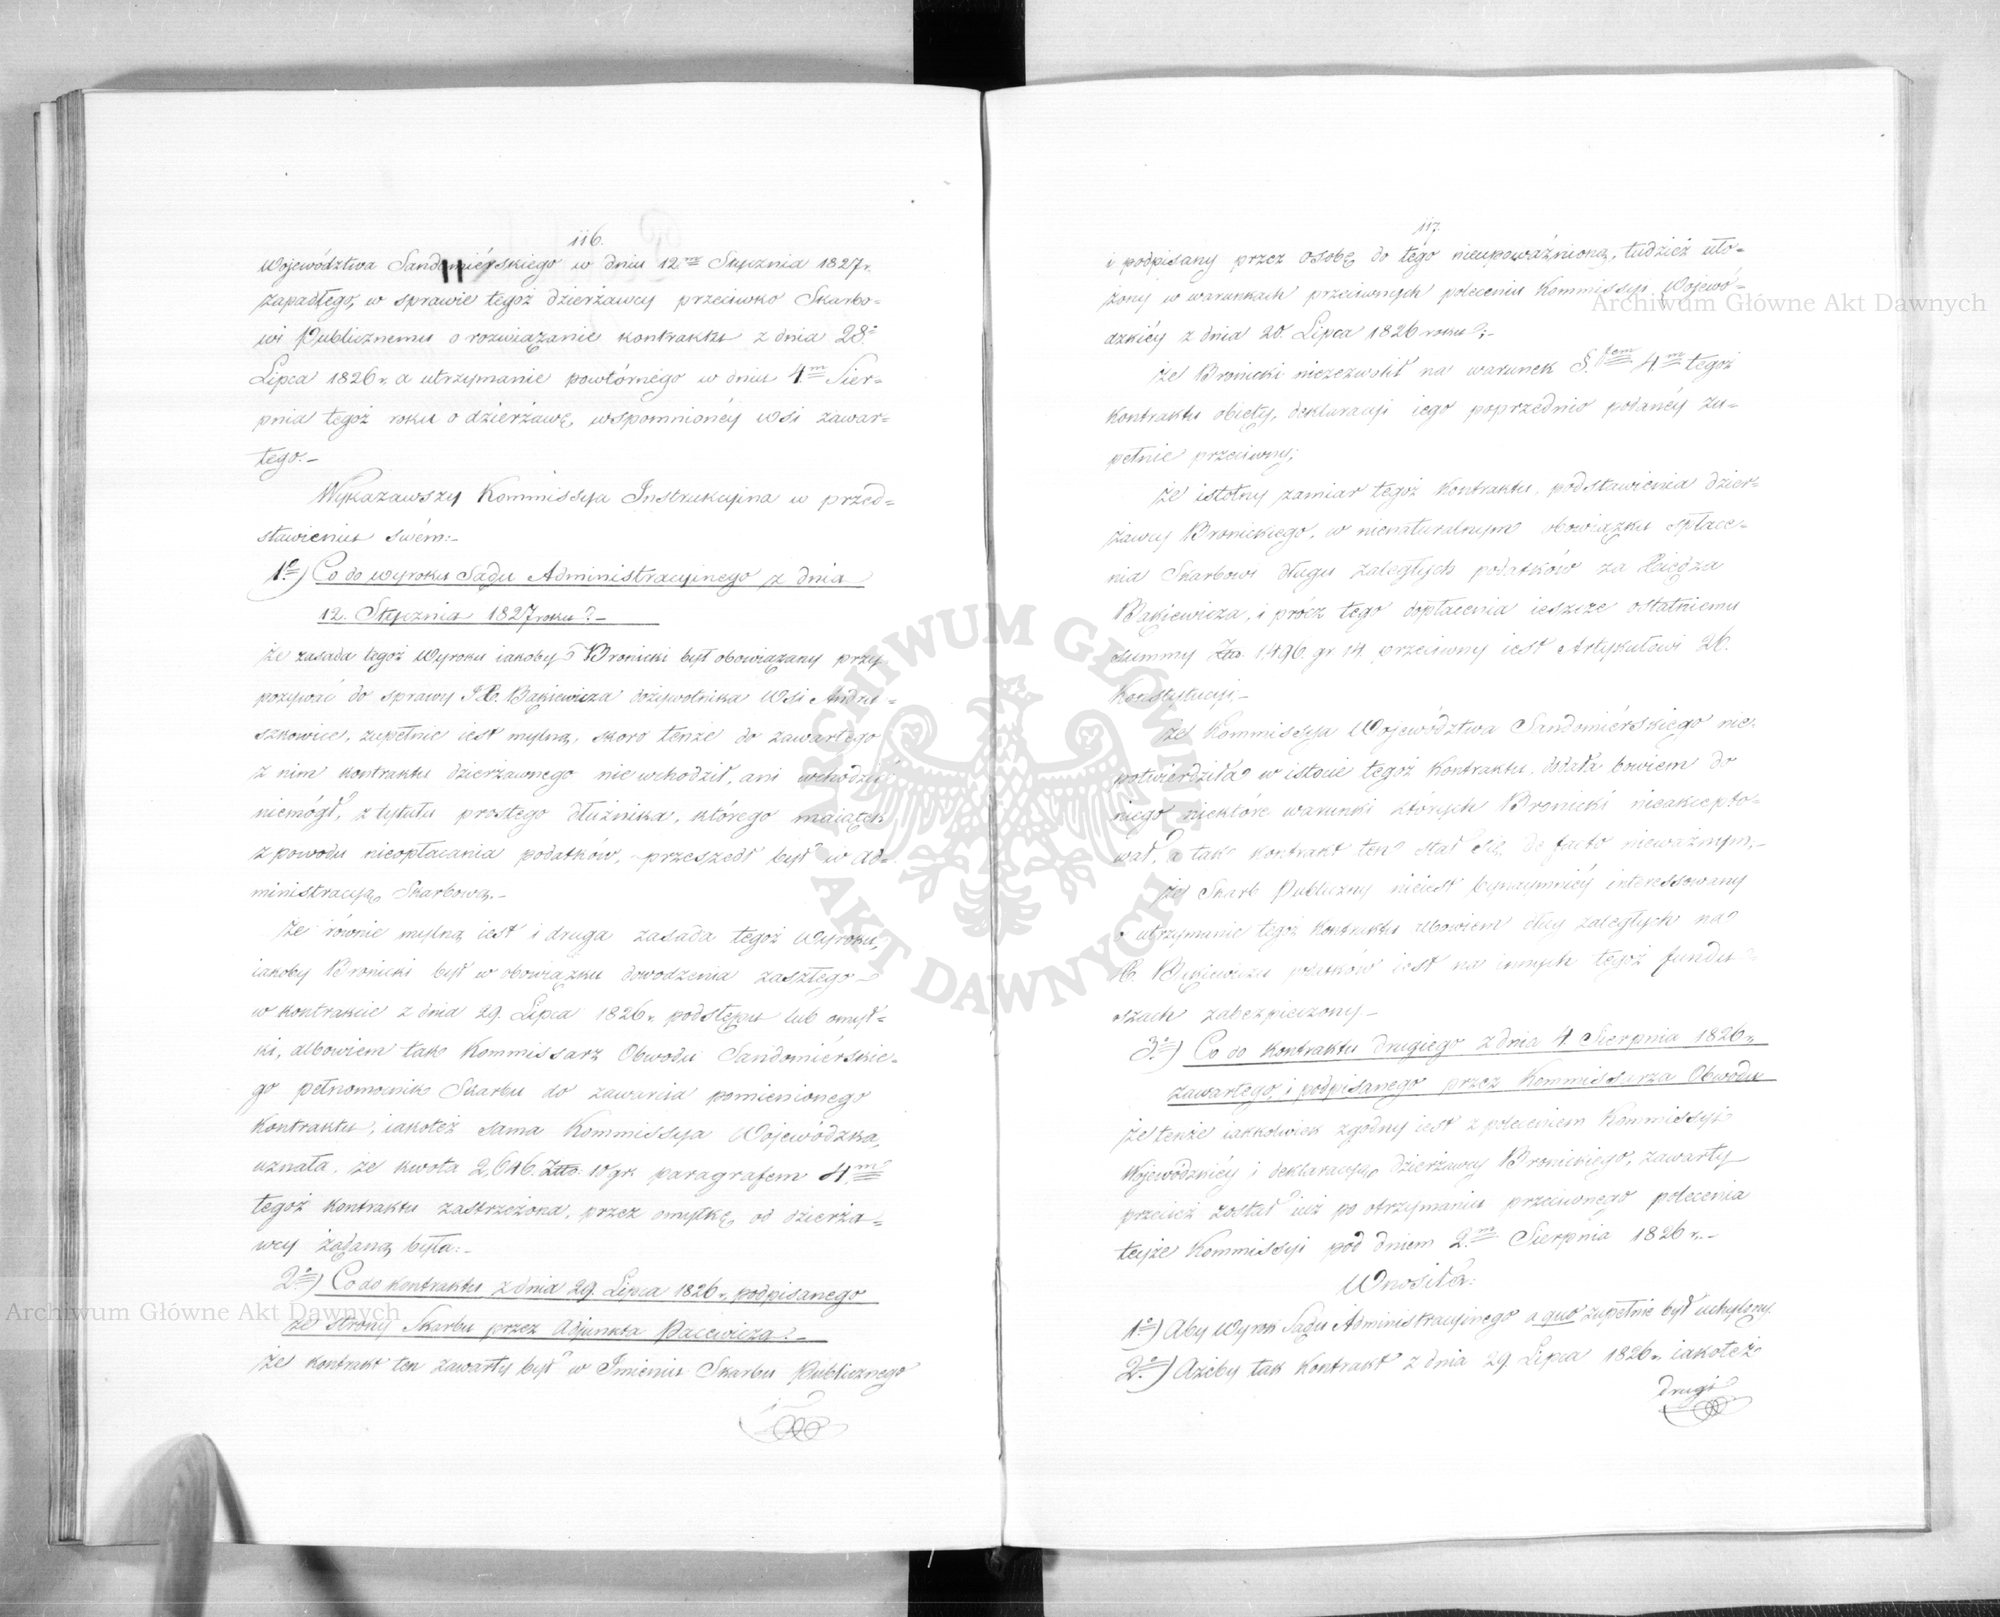 116.
Województwa Sandomiérskiego w dniu 12.m Stycznia 1827 r.
zapadłego, w sprawie tegoż dzierżawcy przeciwko Skarbo-
wi Publicznemu o rozwiązanie kontraktu z dnia 28.o
Lipca 1826 r. a utrzymanie powtórnego w dniu 4.m Sier-
pnia tegoż roku o dzierżawę, wspomnionéy Wsi zawar-
tego.-
Wykazawszy Kommissya Instrukcyina w przed-
stawieniu swém:-
1.o) Co do wyroku Sądu Administracyinego z dnia
12. Stycznia 1827 roku?-
że zasada tegoż Wyroku iakoby Bronicki był obowiązany przy
pozywać do sprawy JX. Bąkiewicza dożywotnika Wsi Andru-
szkowice, zupełnie iest mylną, skoro tenże do zawartego
z nim kontraktu dzierżawnego nie wchodził, ani wchodzić
niemógł, z tytułu prostego dłużnika, którego maiątek
z powodu nieopłacania podatków, przeszedł był w Ad-
ministracyą Skarbową.-
że równie mylną iest i druga zasada tegoż Wyroku,
iakoby Bronicki był w obowiązku dowodzenia zaszłego
w kontrakcie z dnia 29. Lipca 1826 r. podstępu lub omył-
ki, albowiem tak Kommissarz Obwodu Sandomiérskie-
go pełnomocnik Skarbu do zawarcia pomienionego
Kontraktu, iakoteż sama Kommissya Wojewódzka,
uznała, że kwota 2,616. Złtp. 10 gr. paragrafem 4.m
tegoż kontraktu zastrzeżona, przez omyłkę od dzierża-
wcy żądaną była:-
2.o) Co do kontraktu z dnia 29. Lipca 1826 r. podpisanego
ze strony Skarbu przez Adjunkta Pacewicza?-
że kontrakt ten zawarty był w Imieniu Skarbu Publicznego
i
117.
i podpisany przez osobę do tego nieupoważnioną, tudzież uło-
żony w warunkach przeciwnych poleceniu Kommissyi Wojewó-
dzkiéy z dnia 20. Lipca 1826 roku?;-
że Bronicki niezezwolił na warunek §.fem 4.m tegoż
kontraktu obięty, deklaracyi iego poprzednio podanéy zu-
pełnie przeciwny;
że istotny zamiar tegoż kontraktu, podstawienia dzier-
żawcy Bronickiego, w nienaturalnym obowiązku spłace-
nia Skarbowi długu zaległych podatków za Xiędza
Bąkiewicza, i prócz tego dopłacenia ieszcze ostatniemu
summy Złtp. 1,496. gr. 14 przeciwny iest Artykułowi 26.
Konstytucyi.-
że Kommissya Województwa Sandomiérskiego nie-
potwierdziła w istocie tegoż kontraktu, dodała bowiem do
niego niektóre warunki których Bronicki nieakcepto-
wał, a tak kontrakt ten stał się de facto nieważnym,-
że Skarb Publiczny nieiest bynaymniéy interessowany
o utrzymanie tegoż kontraktu albowiem dług zaległych na
X. Bąkiewiczu podatków iest na innych tegoż fundu-
szach zabezpieczony.-
3.o) Co do kontraktu drugiego z dnia 4. Sierpnia 1826 r.
zawartego, i podpisanego przez Kommissarza Obwodu
że tenże iakkolwiek zgodny iest z poleceniem Kommissyi
Wojewódzkiéy i deklaracyą dzierżawcy Bronickiego, zawarty
przecież został iuż po otrzymaniu przeciwnego polecenia
teyże Kommissyi pod dniem 2.m Sierpnia 1826 r.-
Wnosiła:
1.o) Aby Wyrok Sądu Administracyinego a quo zupełnie był uchylony.
2.o) Ażeby tak Kontrakt z dnia 29. Lipca 1826 r. iakoteż
drugi
Archiwum Główne Akt Dawnych
Archiwum Główne Akt Dawnych
ARCHIWUM GŁÓWNE AKT DAWNYCH